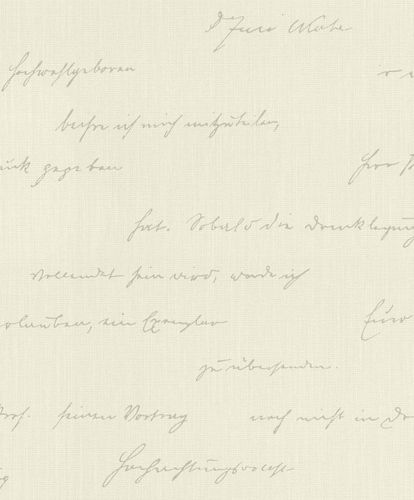 Hochwohlgeboren
beehre ich mich mitzuteilen,
Druck gegeben
hat. Sobald die Drucklegung
vollendet sein wird, werde ich
erlauben, ein Exemplar Euer
zu übersenden.
Prof. seinen Vortrag noch nicht in Dr
Hochachtungsvollst